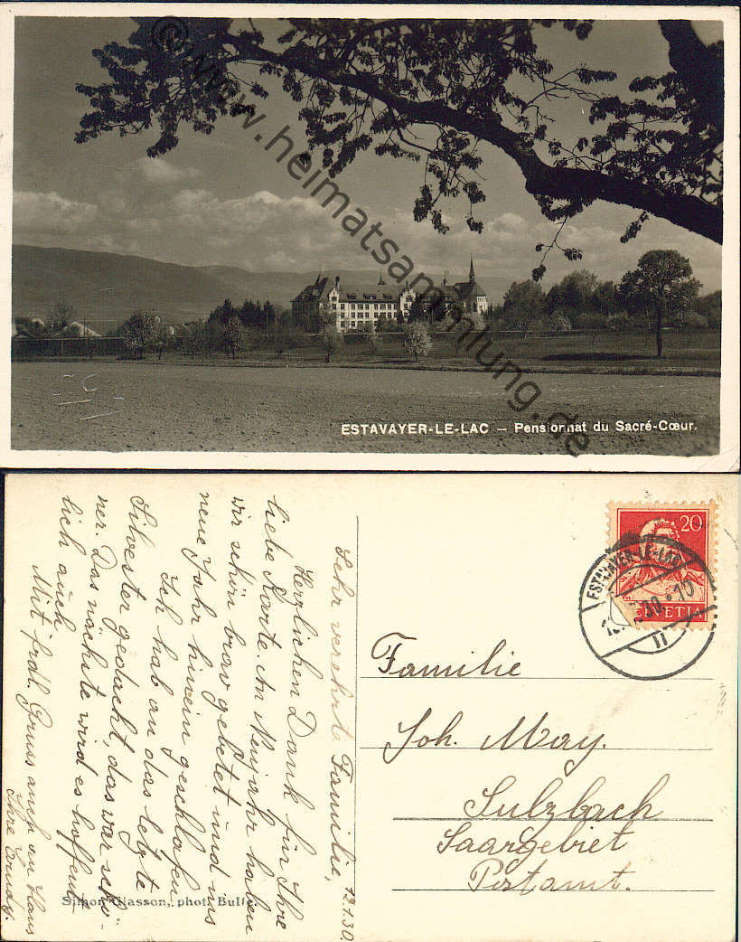 © www.heimatsammlung.de
ESTAVAYER-LE-LAC – Pensionnat du Sacré-Cœur.
20
HELVETIA
ESTAVAYER-LE-LAC
12.1.30.
Sehr verehrte Familie,
Herzlichen Dank für Ihre
liebe Karte. An Neujahr haben
wir schön brav gebetet und ins
neue Jahr hinein geschlafen.
Ich hab an das letzte
Silvester gedacht, das war schö-
ner. Das nächste wird es hoffent-
lich auch.
Mit frdl. Gruss auch an Hans
Ihre
Familie
Joh. May.
Sulzbach
Saargebiet
Postamt.
Simon Glasson, phot. Bulle.